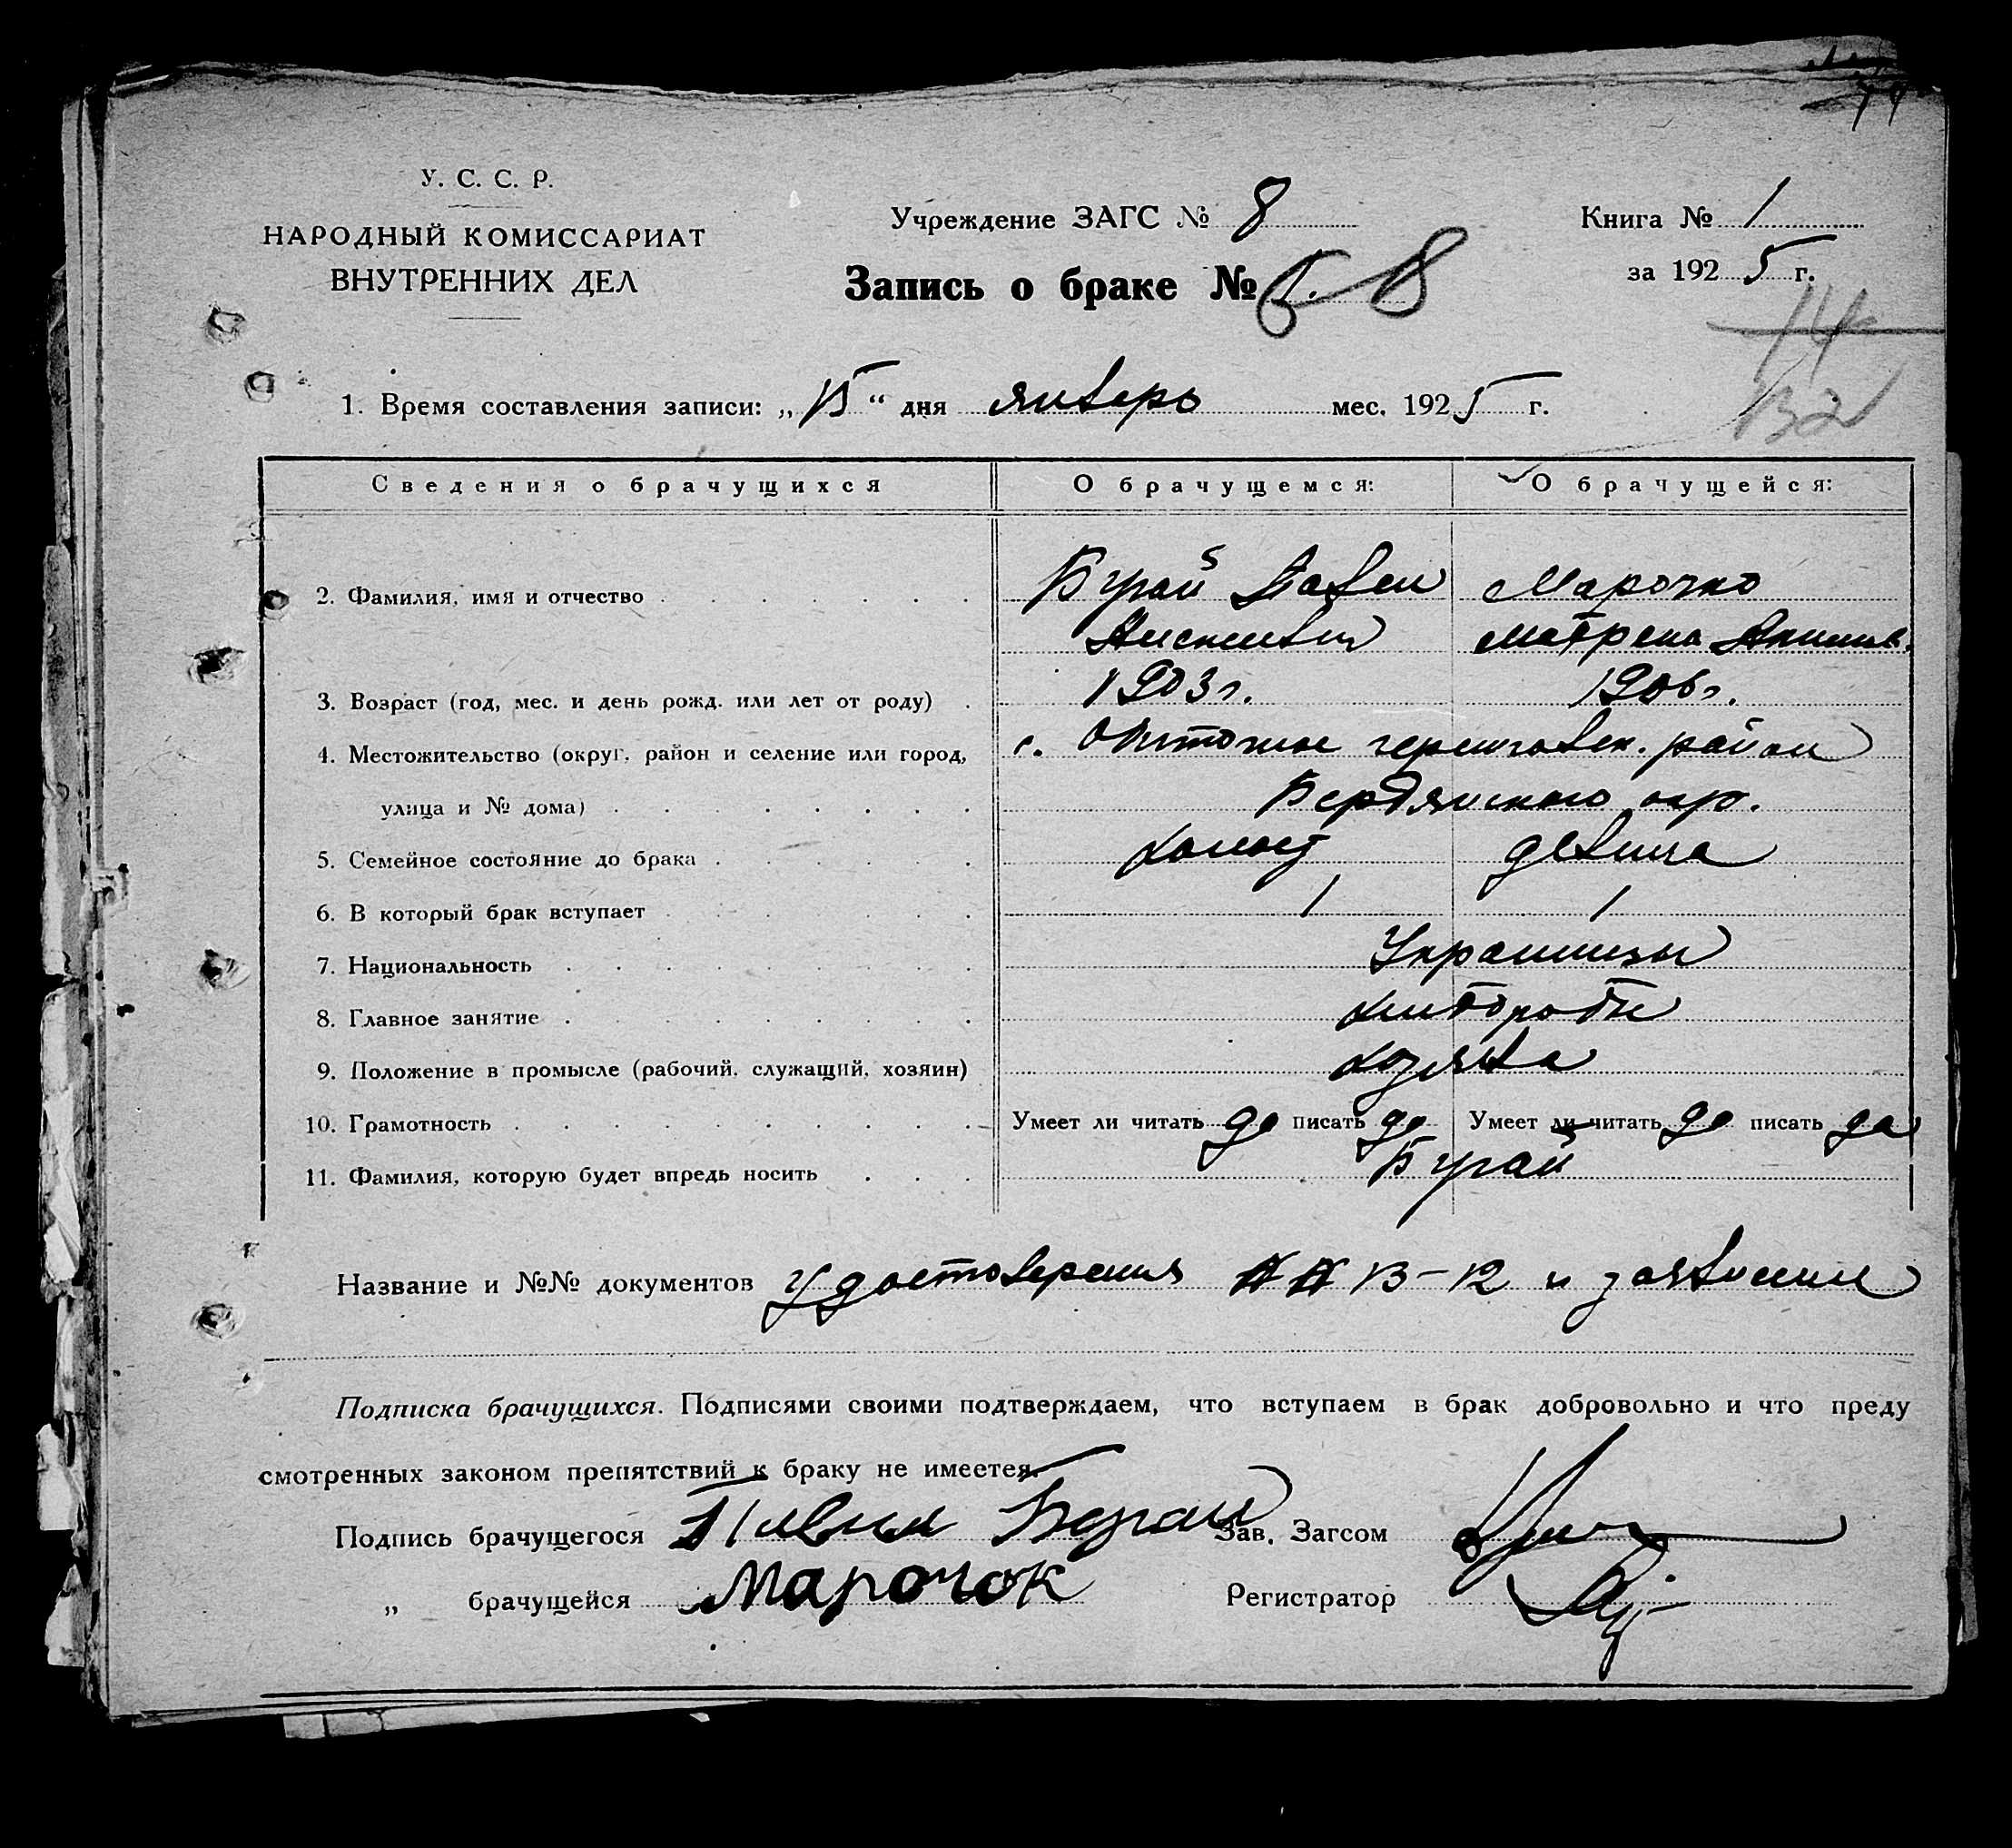 79
У. С. С. Р.
НАРОДНЫЙ КОМИССАРИАТ
ВНУТРЕННИХ ДЕЛ
Учреждение ЗАГС № 8
Книга № 1
за 1925 г.
Запись о браке № 8
14
132
1. Время составления записи: „15“ дня январь мес. 1925 г.
Сведения о брачущихся О брачущемся: О брачущейся:
2. Фамилия, имя и отчество Бурай Павел Марочко
Матрена
3. Возраст (год, мес. и день рожд. или лет от роду) 1903 г. 1906 г.
4. Местожительство (округ, район и селение или город, с. Обиточное черниговск. район
улица и № дома) Бердянского окр.
5. Семейное состояние до брака холост девица
6. В который брак вступает 1 1
7. Национальность Украинцы
8. Главное занятие хлебороды
9. Положение в промысле (рабочий, служащий, хозяин) хозяева
10. Грамотность Умеет ли читать да писать да Умеет ли читать да писать да
11. Фамилия, которую будет впредь носить Бурай
Название и №№ документов Удостоверения №№ 13-12 и заявление
Подписка брачущихся. Подписями своими подтверждаем, что вступаем в брак добровольно и что преду
смотренных законом препятствий к браку не имеется.
Подпись брачущегося Зав. Загсом
„ брачущейся Марочок Регистратор